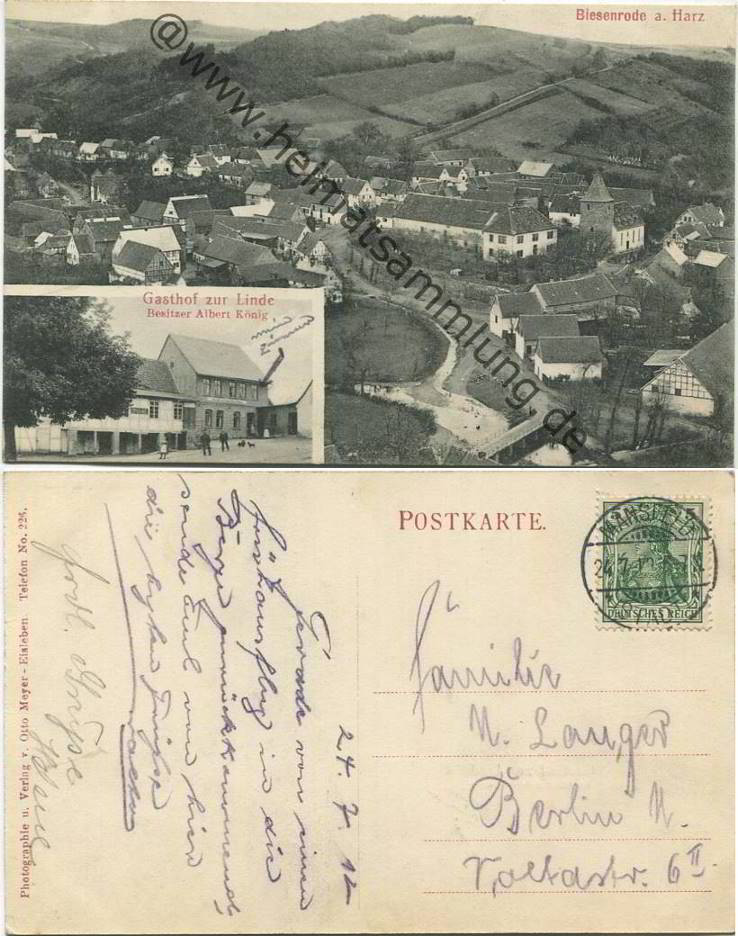 Biesenrode a. Harz
@www.heimatsammlung.de
Gasthof zur Linde
Besitzer Albert König
POSTKARTE.
MANSFELD
24.7.12
DEUTSCHES REICH
Familie
M. Langer
Berlin N.
Voltastr. 6 II.
24.7.12
Gerade von einem
Frühausflug in die
Berge zurückkommend,
sende Euch von hier
die
Grüße
Photographie u. Verlag v. Otto Meyer - Eisleben. Telefon No. 226.